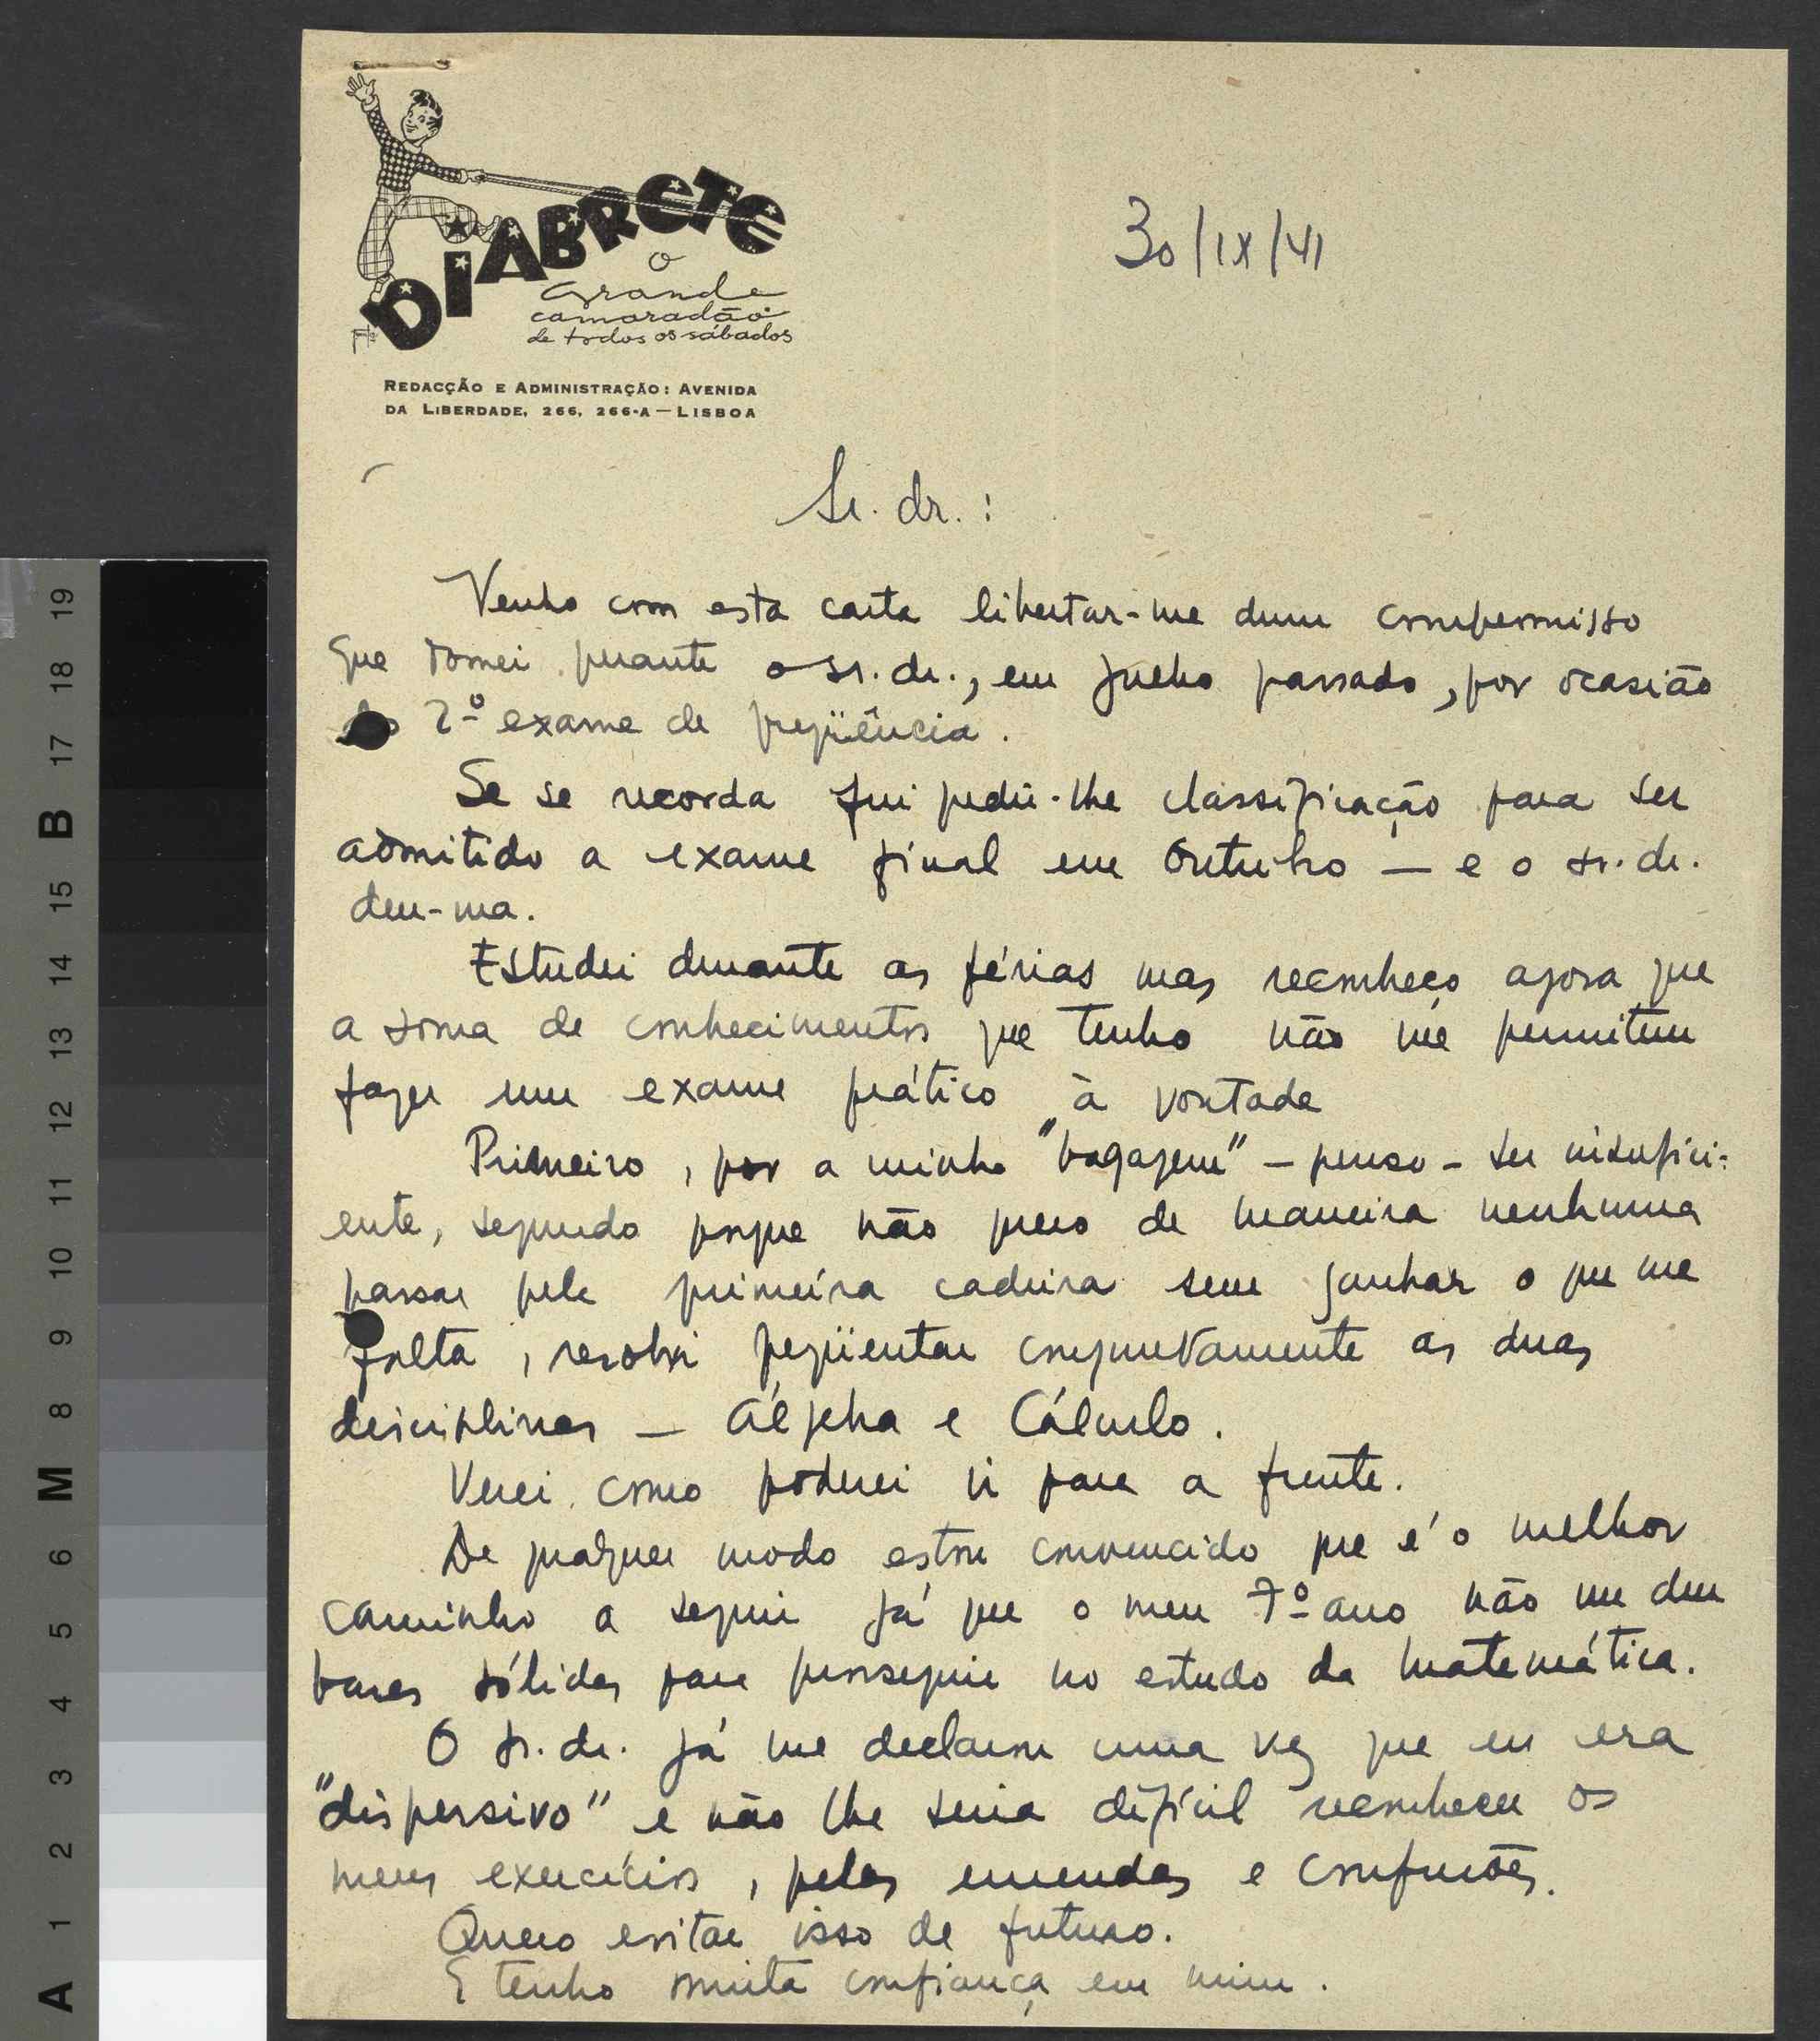 DIABRETE
o
Grande
camaradão
de todos os sábados
REDACÇÃO E ADMINISTRAÇÃO: AVENIDA
DA LIBERDADE, 266, 266-A — LISBOA
30/IX/41
Sr. dr. :
Venho com esta carta libertar-me dum compromisso
que tomei perante o sr. dr., em Julho passado, por ocasião
do 2º exame de freqüência.
Se se recorda fui pedir-lhe classificação para ser
admitido a exame final em Outubro — e o sr. dr.
deu-ma.
Estudei durante as férias mas reconheço agora que
a soma de conhecimentos que tenho não me permitem
fazer um exame prático à vontade
Primeiro, por a minha "bagagem" - penso - ser insufici-
ente, segundo porque não quero de maneira nenhuma
passar pela primeira cadeira sem ganhar o que me
falta, resolvi freqüentar conjuntamente as duas
disciplinas — Álgebra e Cálculo.
Verei como poderei ir para a frente.
De qualquer modo estou convencido que é o melhor
caminho a seguir já que o meu 7º ano não me deu
bases sólidas para prosseguir no estudo da matemática.
O sr. dr. já me declarou uma vez que eu era
"dispersivo" e não lhe seria difícil reconhecer os
meus exercícios, pelas emendas e confusões.
Quero evitar isso de futuro.
E tenho muita confiança em mim.
19
18
17
B
16
15
14
13
12
11
10
9
8
M
7
6
5
4
3
2
1
A